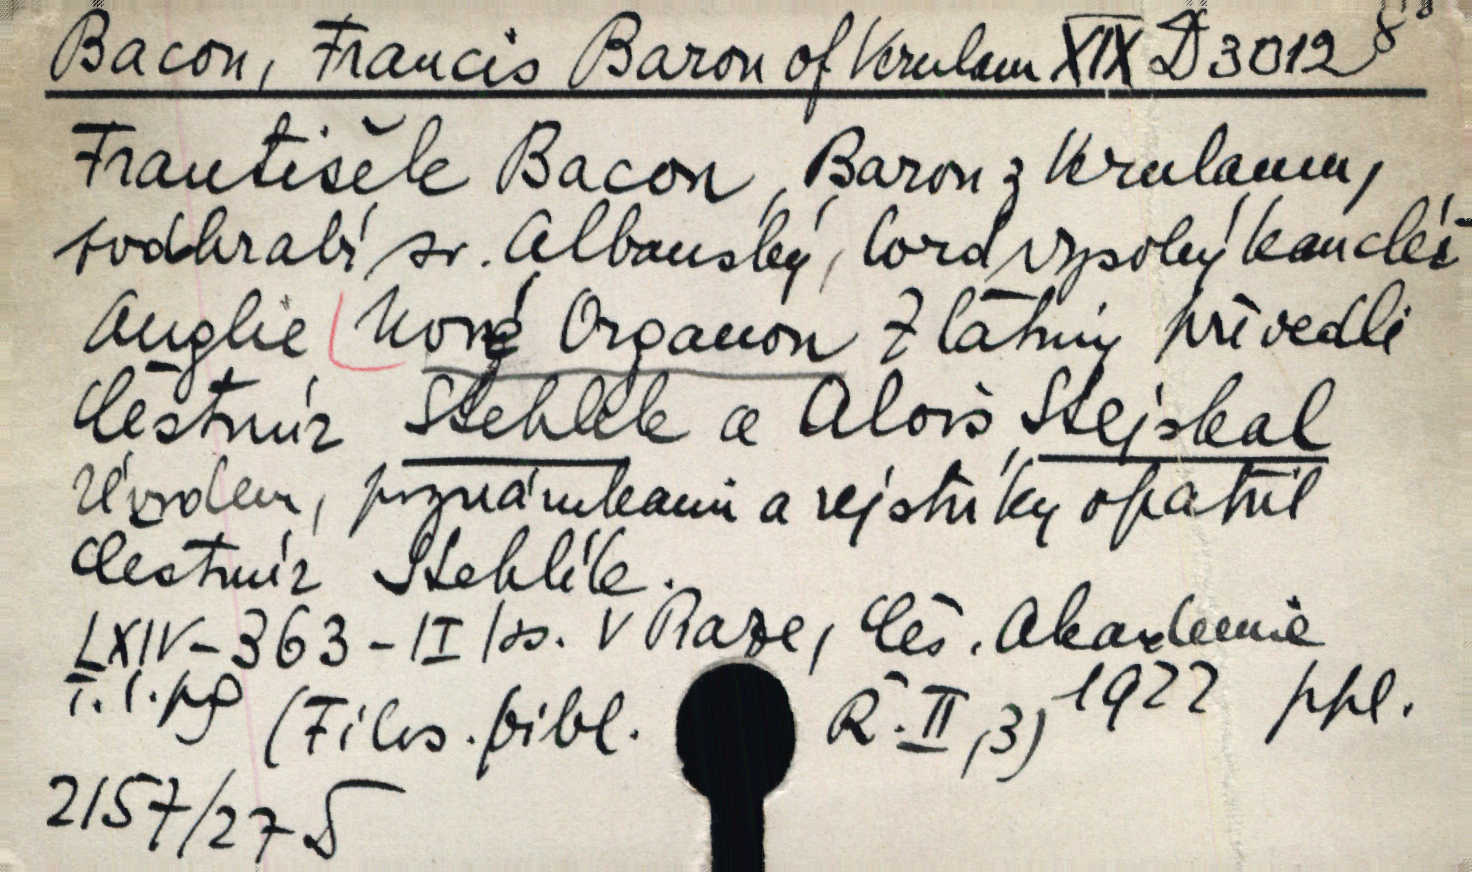 Bacon, Francis Baron of Verulam XIX D 3012 8°
František Bacon, Baron z Verulamu,
vodhrabí sv. Albanský, lord vysoký kancléř
Anglie Nové Organon Z latiny převedli
Čestmír Stehlík a Alois Stejskal
Úvodem, poznámkami a rejstříky opatřil
Čestmír Stehlík.
LXIV-363-II ss. V Praze, Čes. Akademie
T. I. pg (Filos. bibl. Ř. II, 3) 1922 ppl.
2157/27 D